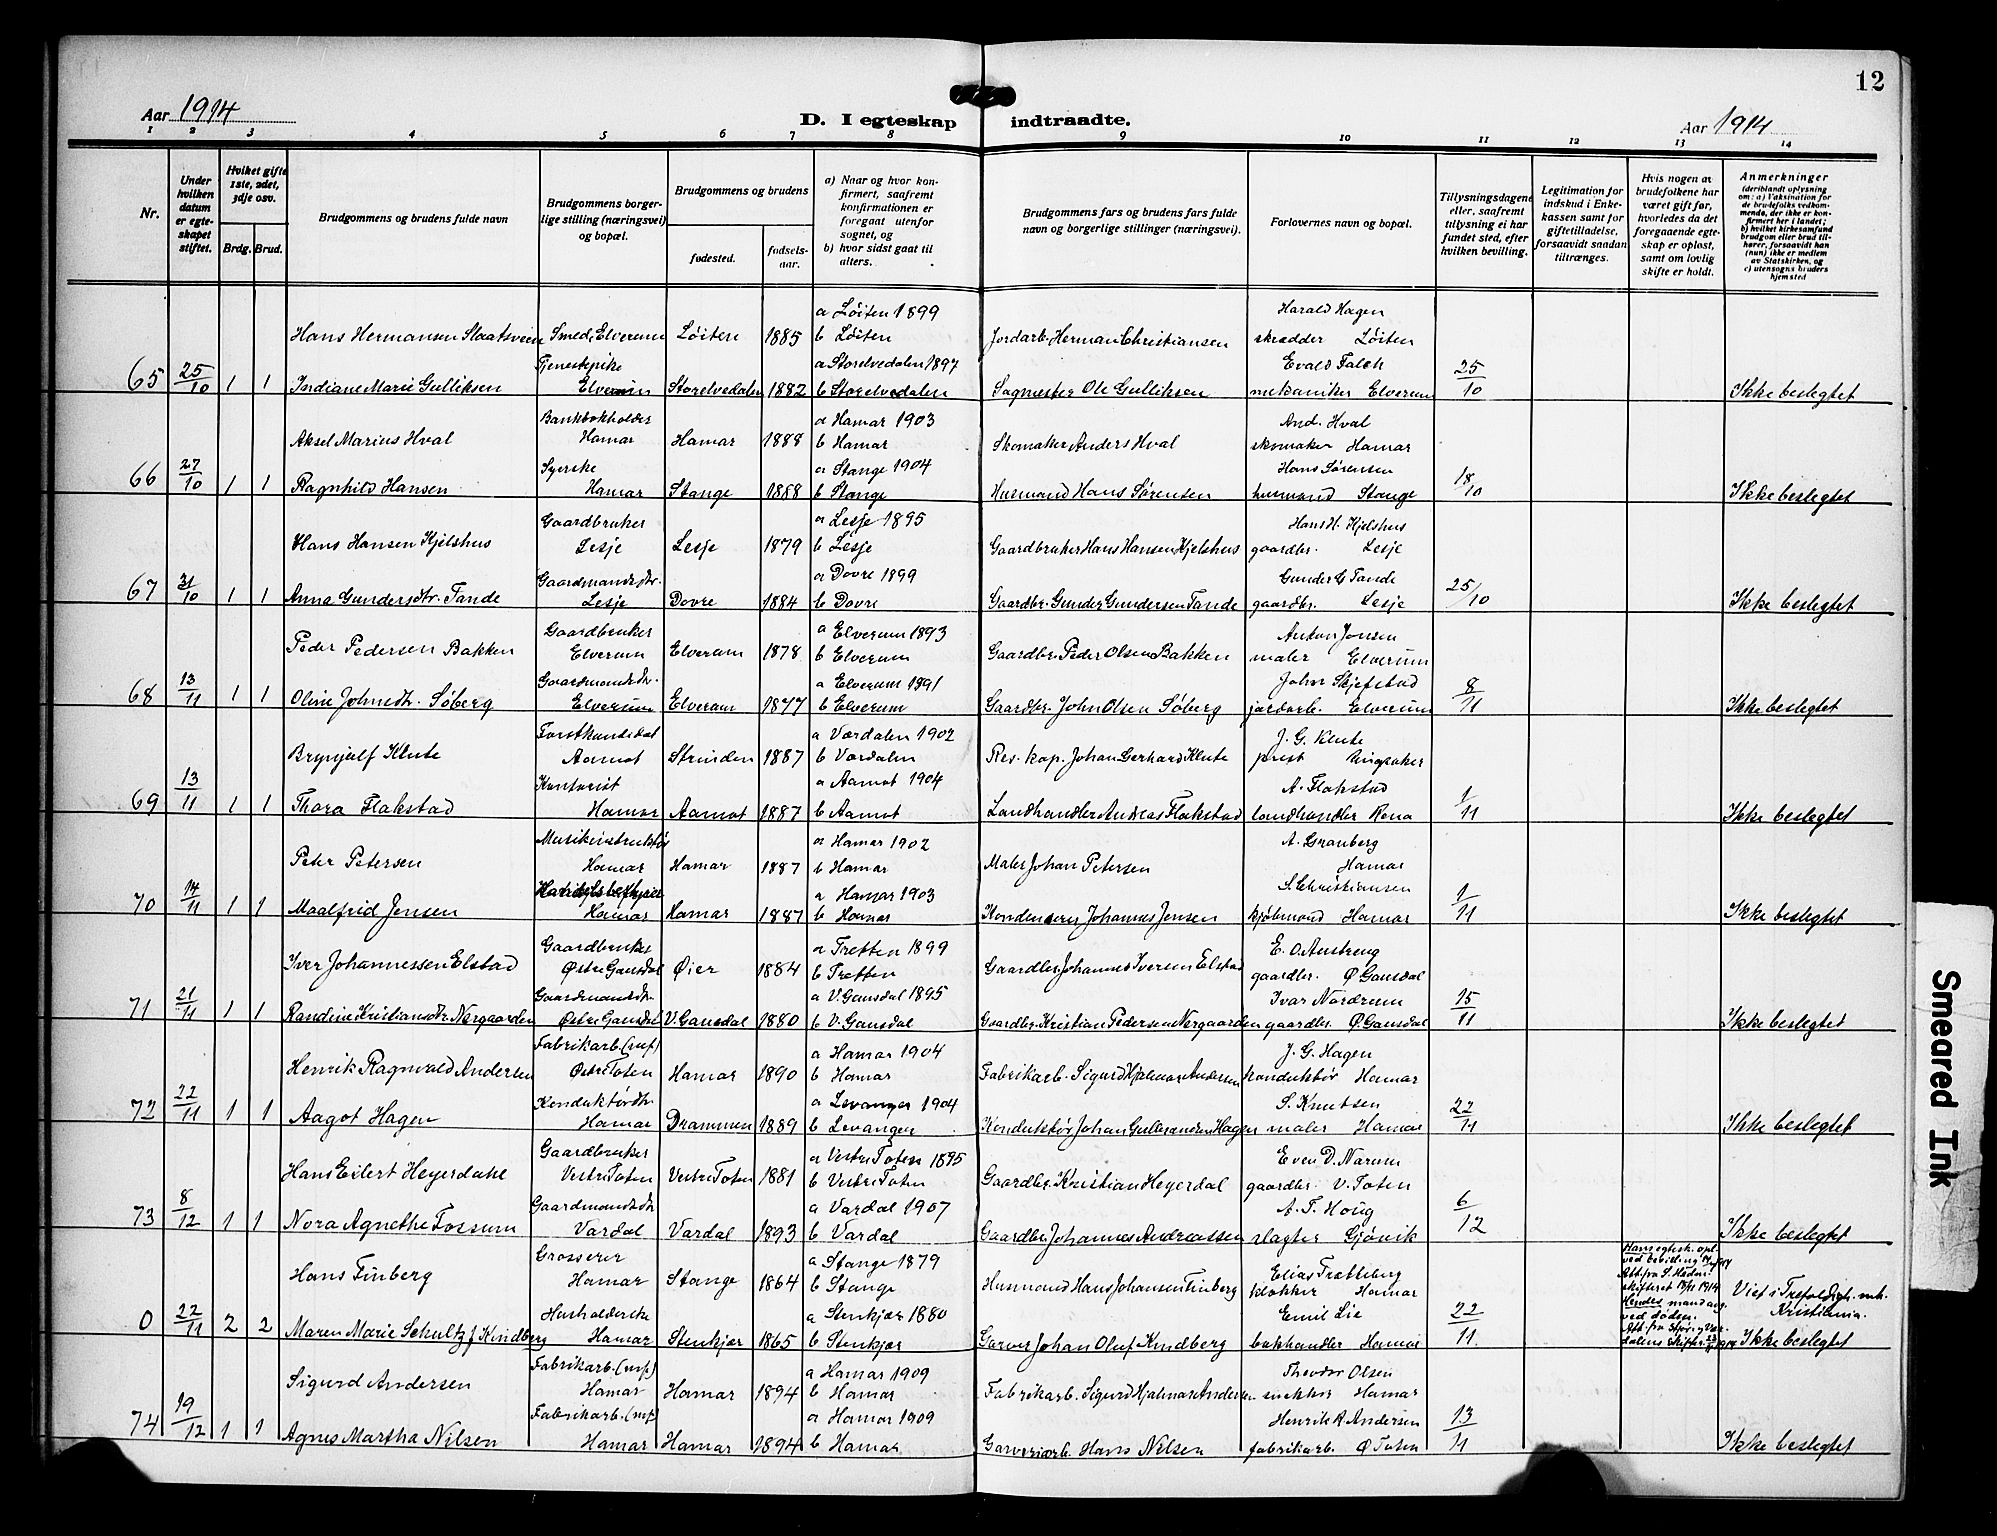 12
Aar 1914
D. I egteskap indtraadte.
Aar 1914
1 2 3 4 5 6 7 8 9 10 11 12 13 14
Nr.
Under hvilken datum er egteskapet stiftet.
Hvilket gifte 1ste, 2det, 3dje osv.
Brdg. Brud.
Brudgommens og brudens fulde navn
Brudgommens borgerlige stilling (næringsvei) og bopæl.
Brudgommens og brudens
fødested.
fødselsaar.
a) Naar og hvor konfirmert, saafremt konfirmationen er foregaat utenfor sognet, og
b) hvor sidst gaat til alters.
Brudgommens fars og brudens fars fulde navn og borgerlige stillinger (næringsvei).
Forlovernes navn og bopæl.
Tillysningsdagene eller, saafremt tillysning ei har fundet sted, efter hvilken bevilling.
Legitimation for indskud i Enkekassen samt for giftetilladelse, forsaavidt saadan tiltrænges.
Hvis nogen av brudefolkene har været gift før, hvorledes da det foregaaende egteskap er opløst, samt om lovlig skifte er holdt.
Anmerkninger (deriblandt oplysning om: a) Vaksination for de brudefolks vedkommende, der ikke er konfirmert her i landet; b) hvilket kirkesamfund brudgom eller brud tilhører, forsaavidt han (hun) ikke er medlem av Statskirken, og c) utensogns bruders hjemsted
Hans Hermansen Slaatsveen Smed, Elverum Løiten 1885 a Løiten 1899 b Løiten Jordarb. Herman Christiansen Harald Hagen skrædder Løiten
65 25/10 1 1 Indiane Marie Gulliksen Tjenestepike Elverum Storelvedalen 1882 a Storelvedalen 1897 b Storelvedalen Sagmester Ole Gulliksen Evald Falch mekaniker Elverum 25/10 Ikke beslegtet
Aksel Marius Hval Bankbokholder Hamar Hamar 1888 a Hamar 1903 b Hamar Skomaker Anders Hval And. Hval skomaker Hamar
66 27/10 1 1 Ragnhild Hansen Syerske Hamar Stange 1888 a Stange 1904 b Stange Husmand Hans Sørensen Hans Sørensen husmand Stange 18/10 Ikke beslegtet
Hans Hansen Kjelshus Gaardbruker Lesje Lesje 1879 a Lesje 1895 b Lesje Gaardbruker Hans Hansen Kjelshus Hans H. Kjelshus gaardbr. Lesje
67 31/10 1 1 Anna Gundersdtr. Tande Gaardmandsdtr. Lesje Dovre 1884 a Dovre 1899 b Dovre Gaardbr. Gunder Gundersen Tande Gunder G Tande gaardbr. Lesje 25/10 Ikke beslegtet
Peder Pedersen Bakken Gaardbruker Elverum Elverum 1878 a Elverum 1893 b Elverum Gaardbr. Peder Olsen Bakken Anton Jonsen maler Elverum
68 13/11 1 1 Oline Johnsdtr. Søberg Gaardmandsdtr. Elverum Elverum 1877 a Elverum 1891 b Elverum Gaardbr. John Olsen Søberg Johs Skjefstad jordarb. Elverum 8/11 Ikke beslegtet
Brynjulf Klute Forstkandidat Aamot Strinden 1887 a Værdalen 1902 b Værdalen Res. kap. Johan Gerhard Klute J. G. Klute prest Ringsaker
69 13/11 1 1 Thora Flakstad Kontorist Hamar Aamot 1887 a Aamot 1904 b Aamot Landhandler Andreas Flakstad A. Flakstad landhandler Rena 1/11 Ikke beslegtet
Peter Petersen Musikinstruktør Hamar Hamar 1887 a Hamar 1902 b Hamar Maler Johan Petersen A. Granberg Hamar
70 14/11 1 1 Maalfrid Jensen Handelsbestyrer Hamar Hamar 1887 a Hamar 1903 b Hamar Johannes Jensen S. Christiansen kjøbmand Hamar 1/11 Ikke beslegtet
Iver Johannessen Elstad Gaardbruker Østre Gausdal Øier 1884 a Tretten 1899 b Tretten Gaardbr. Johannes Iversen Elstad E. O. Austreng gaardbr. Ø. Gausdal
71 21/11 1 1 Randine Kristiansdtr. Nørgaarden Gaardmandsdtr. Østre Gausdal V. Gausdal 1880 a V. Gausdal 1895 b V. Gausdal Gaardbr. Kristian Pedersen Nørgaarden Ivar Nordrum gaardbr. Ø. Gausdal 15/11 Ikke beslegtet
Henrik Ragnvald Andersen Fabrikarb. (mf) Østre Toten Hamar 1890 a Hamar 1904 b Hamar Fabrikarb. Sigurd Hjalmar Andersen J. G. Hagen konduktør Hamar
72 22/11 1 1 Aagot Hagen Konduktørdtr Hamar Drammen 1889 a Levanger 1904 b Levanger Konduktør Johan Gulbrandsen Hagen S. Knutsen maler Hamar 22/11 Ikke beslegtet
Hans Eilert Heyerdahl Gaardbruker Vestre Toten Vestre Toten 1881 a Vestre Toten 1895 b Vestre Toten Gaardbr. Kristian Heyerdal Even D. Narum gaardbr. V. Toten
73 8/12 1 1 Nora Agnethe Fossum Gaardmandsdtr Vardal Vardal 1893 a Vardal 1907 b Vardal Gaardbr. Johannes Andreassen A. T. Houg slagter Gjøvik 6/12 Ikke beslegtet
Hans Finberg Grosserer Hamar Stange 1864 a Stange 1879 b Stange Husmand Hans Johansen Finberg Elias Trætteberg klokker Hamar Hans egtesk. opl. ved bevilling Viet i Trefoldigh. mk. Kristiania.
0 22/11 2 2 Maren Marie Schultz f Kindberg Husholderske Hamar Stenkjær 1865 a Stenkjær 1880 b Stenkjær Garver Johan Oluf Kindberg Emil Lie bokhandler Hamar 22/11. Hendes mand ved døden. Ikke beslegtet
Sigurd Andersen Fabrikarb. (mf) Hamar Hamar 1894 a Hamar 1909 b Hamar Fabrikarb. Sigurd Hjalmar Andersen Theodor Olsen snekker Hamar
74 19/12 1 1 Agnes Martha Nilsen Fabrikarb. (mf) Hamar Hamar 1894 a Hamar 1909 b Hamar Garveriarb. Hans Nilsen Henrik R. Andersen fabrikarb. Ø Toten 13/11 Ikke beslegtet
Smeared Ink